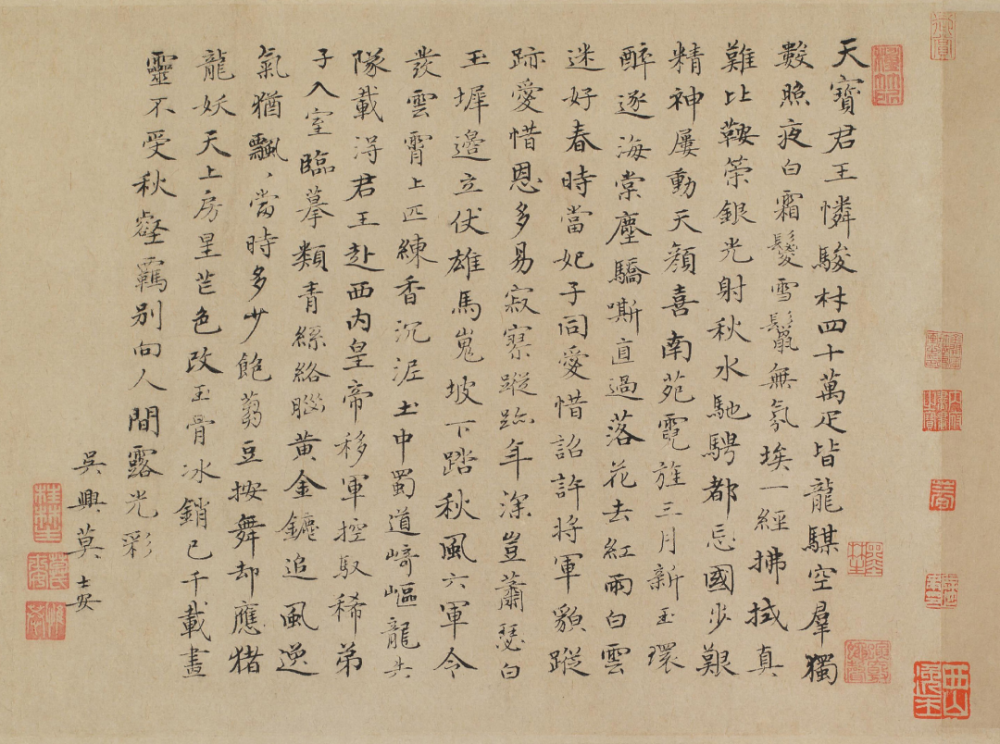 天寶君王憐駿材四十萬疋皆龍騋空羣獨
數照夜白霜鬉雪鬣無氛埃一經拂拭真
難比鞍帶銀光射秋水馳騁都忘國步艱
精神屢動天顏喜南苑霓旌三月新玉環
醉逐海棠塵驕嘶直過落花去紅雨白雲
迷好春時當妃子同愛惜詔許將軍貌蹤
跡愛惜恩多易寂寥蹤跡年深豈蕭瑟白
玉墀邊立仗雄馬嵬坡下踏秋風六軍令
發雲霄上匹練香沉泥土中蜀道崎嶇龍共
隊載得君王赴西內皇帝移軍控馭稀弟
子入室臨摹類青絲絡腦黃金鑣追風逸
氣猶飄、當時多少飽芻豆按舞却應猪
龍妖天上房星芒色改玉骨冰銷已千載畫
靈不受秋壑羈別向人間露光彩
吳興莫士安